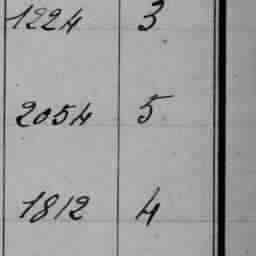 1224 3
2054 5
1812 4